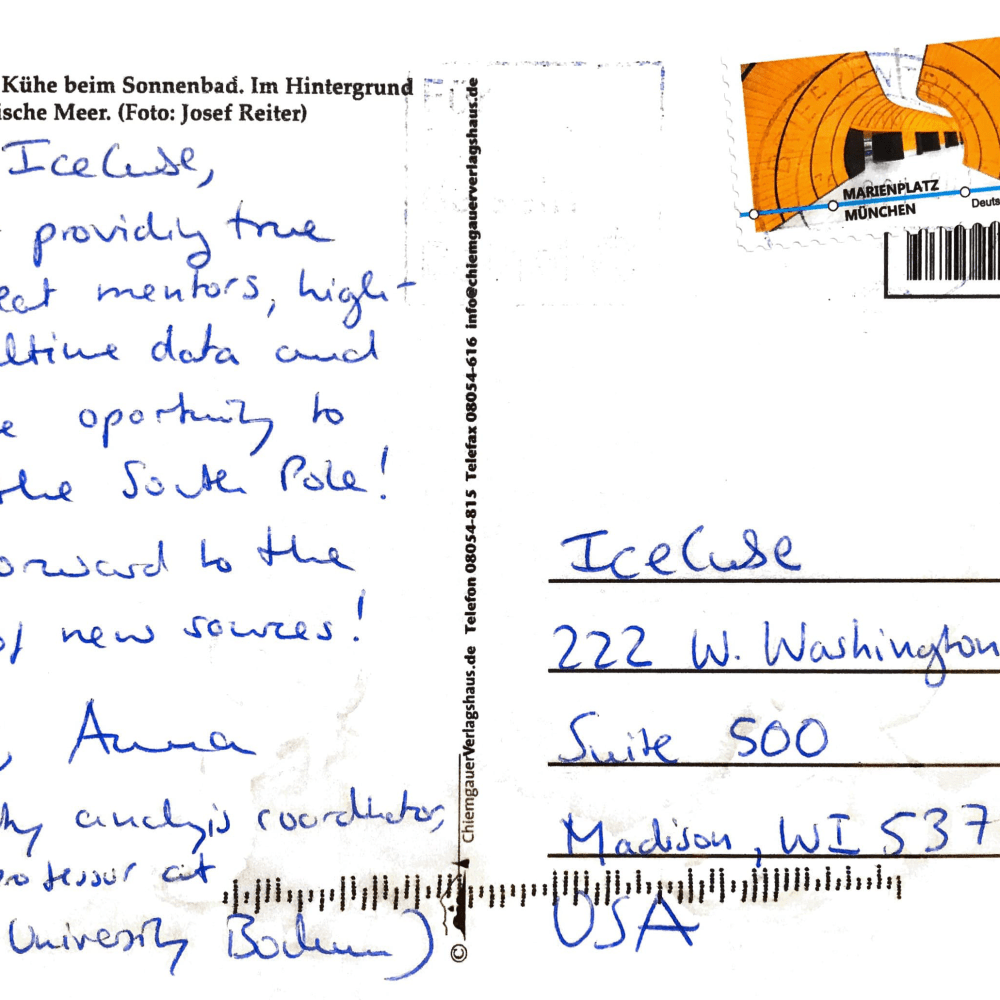 Kühe beim Sonnenbad. Im Hintergrund
ische Meer. (Foto: Josef Reiter)
IceCube,
providing true
eat mentors, high-
altime data and
e oportunity to
the South Pole!
orward to the
of new sources!
, Anna
analysis coordinator,
rofessor at
University Bochum)
ChiemgauerVerlagshaus.de Telefon 08054-815 Telefax 08054-616 info@chiemgauerverlagshaus.de
©
MARIENPLATZ
MÜNCHEN
Deuts
IceCube
222 W. Washington
Suite 500
Madison, WI 537
USA